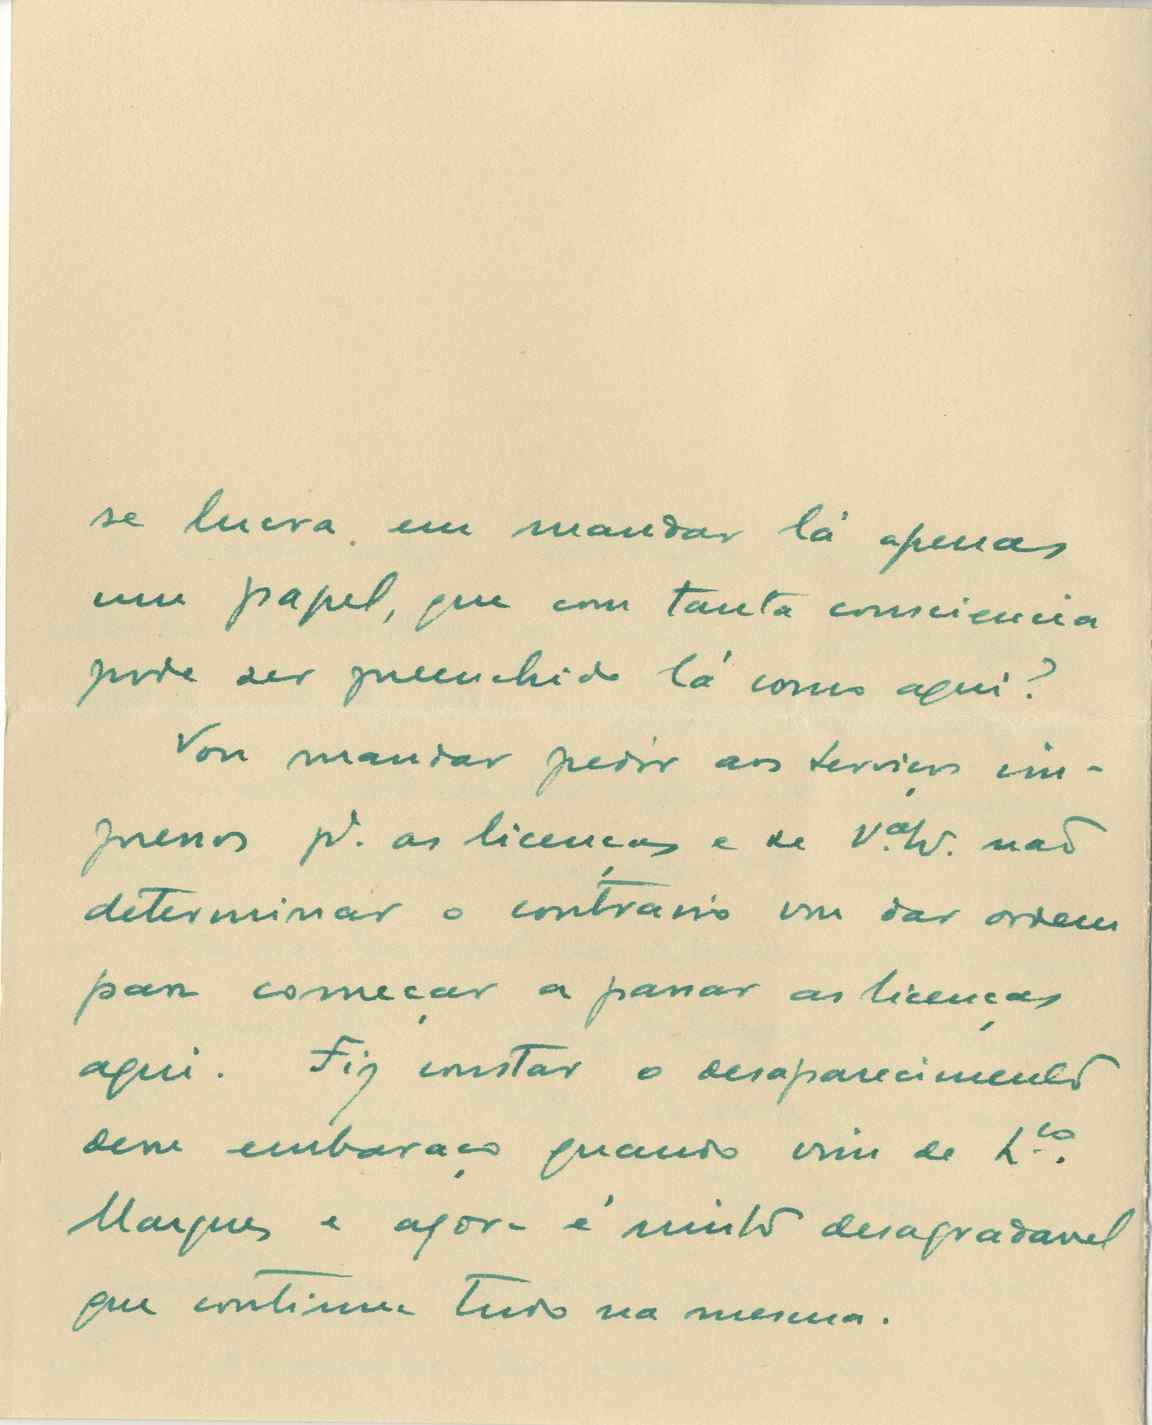 se lucra em mandar lá apenas
um papel, que com tanta consciencia
pode ser preenchido lá como aqui?
Vou mandar pedir aos serviços im-
pressos p.ª as licenças e se V.ª não
determinar o contrario vou dar ordem
para começar a passar as licenças
aqui. Fiz constar o desaparecimento
desse embaraço quando vim de L.ço
Marques e agora é muito desagradavel
que continue tudo na mesma.